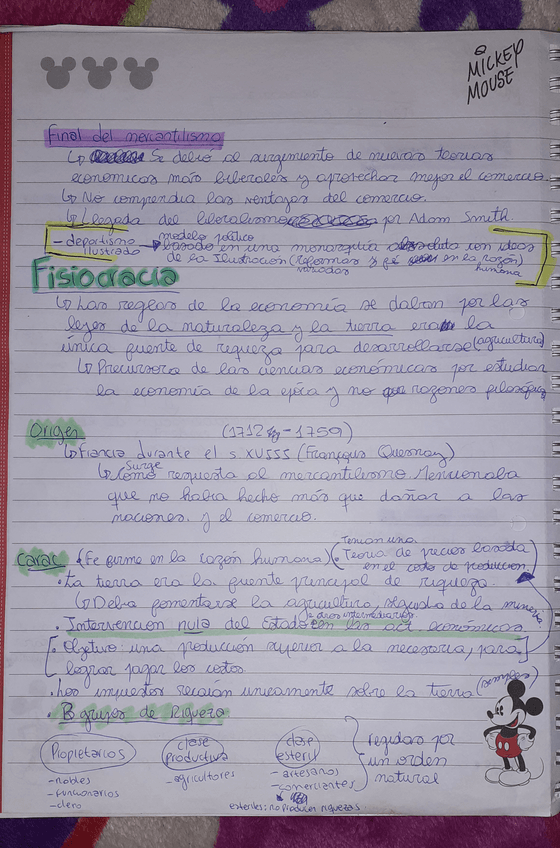 MICKEY
MOUSE
Final del mercantilismo
↳ Se debio al surgimiento de nuevas teorias
economicas más liberales y aprovechar mejor el comercio.
↳ No comprendia las ventajas del comercio.
↳ Llegada del liberalismo por Adam Smith.
- depotismo ilustrado → modelo político
basado en una monarquía absoluta con ideas
de la Ilustración (reformas y fé en la razón humana)
Fisiocracia
↳ Las reglas de la economía se daban por las
leyes de la naturaleza y la tierra era la
única fuente de riqueza para desarrollarse (agricultura)
↳ Precursora de las ciencias económicas por estudiar
la economía de la época y no razones filosóficas
Origen (1712 - 1759)
↳ Francia durante el s. XVIII (François Quesnay)
↳ Surge como respuesta al mercantilismo. Mencionaba
que no había hecho más que dañar a las
naciones y el comercio.
Carac.
• (Fe firme en la razón humana) (• Tenian una Teoría de precios basada
en el costo de producción.)
• La tierra era la fuente principal de riqueza.
↳ Debia fomentarse la agricultura, seguido de la mineria
• Intervención nula del Estado en las act. económicas
o otros intermediarios
[• Objetivo: una producción superior a la necesaria, para]
lograr pagar los costos.
• Los impuestos recaían unicamente sobre la tierra (simples)
• 3 grupos de Riqueza
Propietarios
- nobles
- funcionarios
- clero
clase productiva
- agricultores
clase esteril
- artesanos
- comerciantes
regidas por
un orden
natural
esteriles: no producen riquezas.